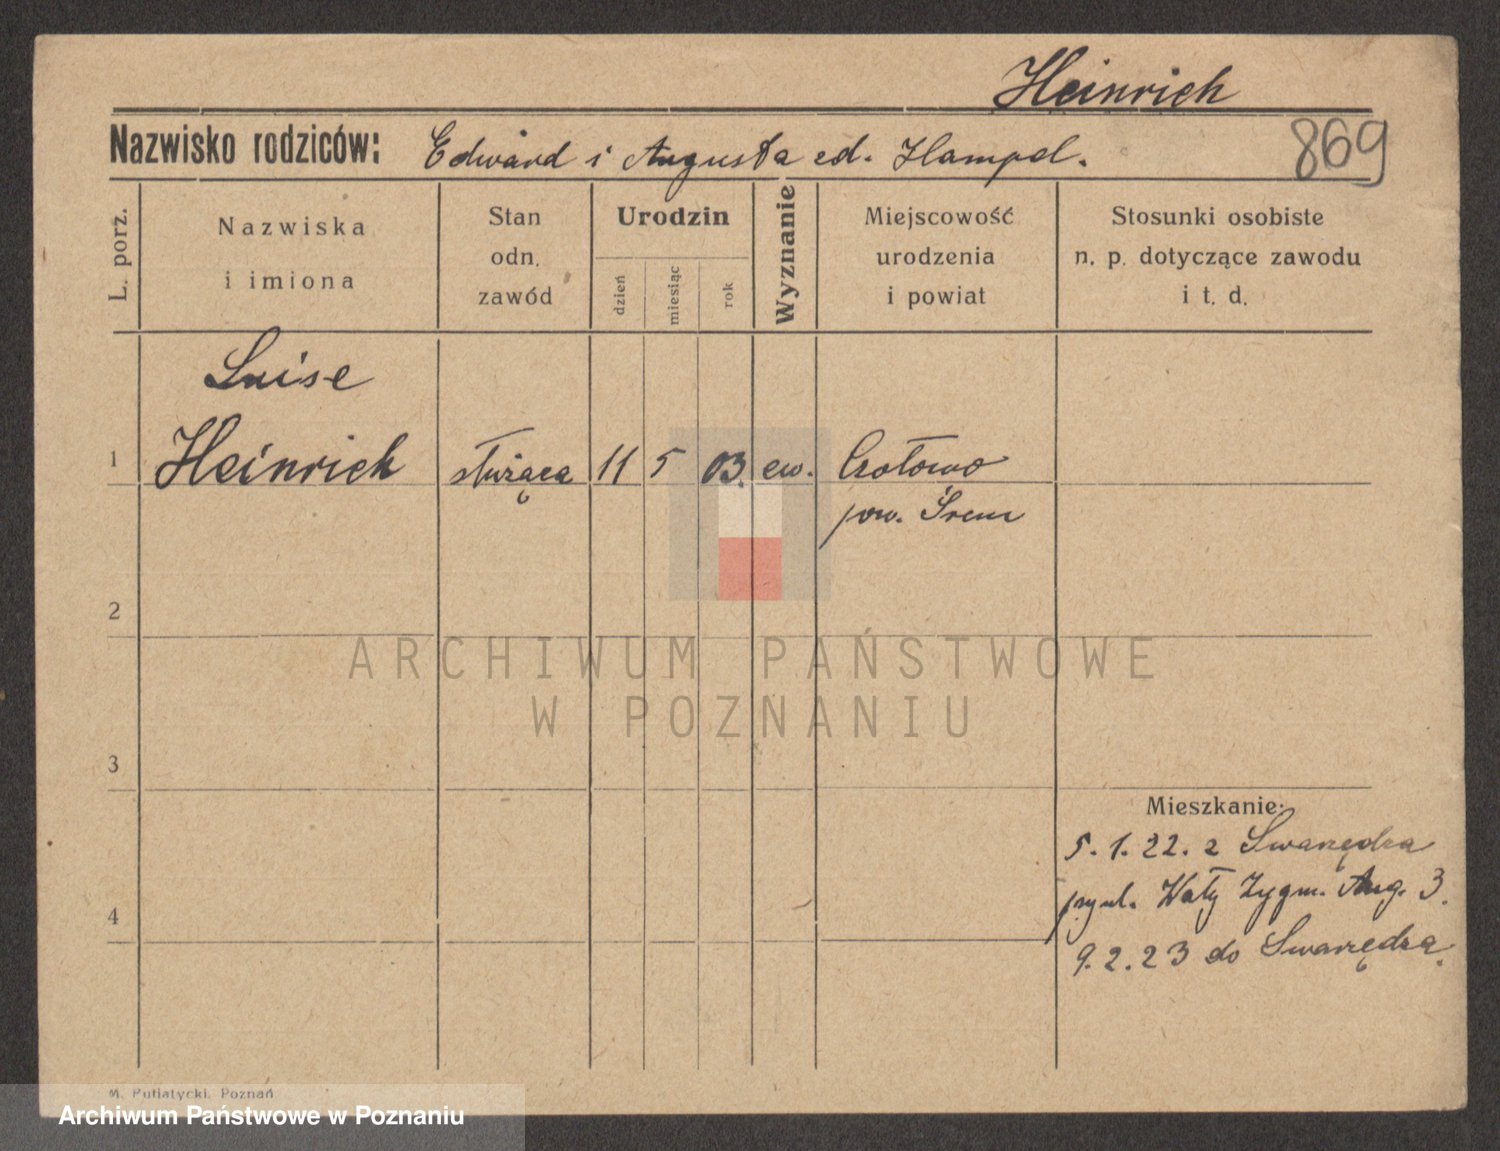 Heinrich
869
Nazwisko rodziców: Edward i Augusta ed. Hampel.
L. porz.
Nazwiska
i imiona
Stan
odn.
zawód
Urodzin
dzień
miesiąc
rok
Wyznanie
Miejscowość
urodzenia
i powiat
Stosunki osobiste
n. p. dotyczące zawodu
i t. d.
Luise
1 Heinrich służąca 11 5 03. ew.
pow. Śrem
2
ARCHIWUM PAŃSTWOWE
W POZNANIU
3
Mieszkanie:
5. 1. 22. z Swarzędza
Wały Zygm. Aug. 3.
4
9. 2. 23 do Swarzędza.
M. Putiatycki, Poznań
Archiwum Państwowe w Poznaniu